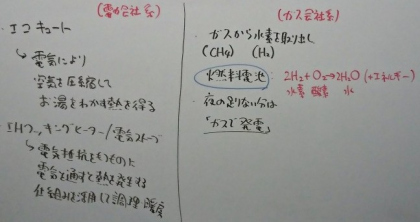 (電力会社系)
・エコキュート
↳電気により
空気を圧縮して
お湯をわかす熱を得る
・IHクッキングヒーター/電気ストーブ
↳電気抵抗をもつものに
電気を通すと熱を発生する
仕組みを活用して調理・暖房
(ガス会社系)
・ガスから水素を取り出し
(CH4) (H2)
燃料電池 : 2H2+O2→2H2O (+エネルギー)
水素 酸素 水
・夜の足りない分は
「ガスで発電」